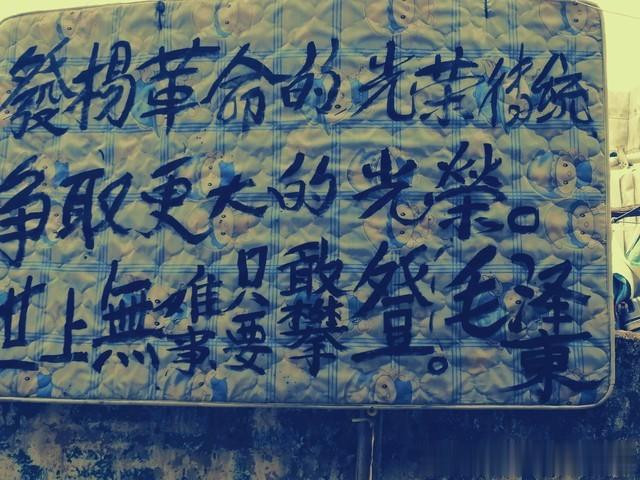 發揚革命的光荣傳統
争取更大的光榮。
世上無难事只要敢攀登。毛泽東